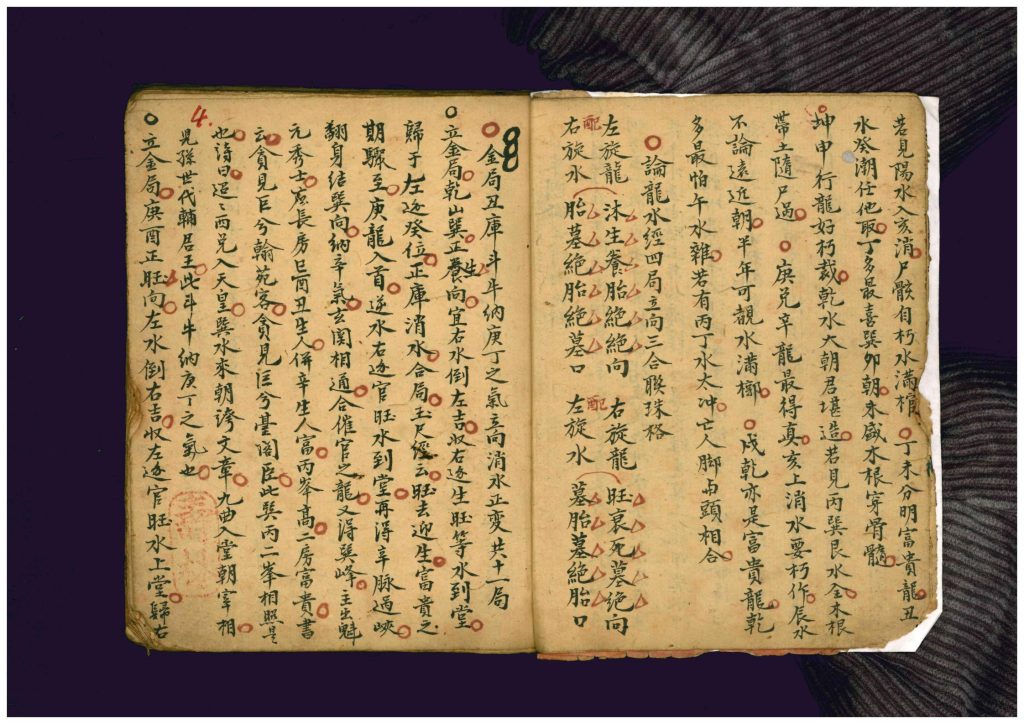 若見陽水入亥消尸骸自朽水滿棺 丁未分明富貴龍丑
水癸潮任他取丁多最喜巽卯朝未盛木根穿骨髓
坤申行龍好朽裁乾水大朝君堪造若見丙巽艮水全木根
帶土隨尸過 庚兌辛龍最得真亥上消水要朽作辰水
不論遠近朝半年可親水滿槨 戍乾亦是富貴龍乾
多最怕午水雜若有丙丁水太冲亡人脚与頭相合
論龍水經四局立向三合聯珠格
左旋龍 沐生養胎絶絶向 右旋龍 旺衰死墓絶向
配 配
右旋水 胎墓絶胎絶墓口 左旋水 墓胎墓絶胎口
8
金局丑庫斗牛納庚丁之氣立向消水正変共十一局
立金局乾山巽正養向宜右水倒左吉収右逆生旺等水到堂
生
歸于左逆癸位正庫消水合局玉尺經云旺去迎生富貴之
期驟至庚龍入首逆水右逆官旺水到堂再得辛脉過峽
翻身結巽向納辛氣玄関相通合催官之龍又得巽峰主出魁
元秀士应長房巳酉丑生人併辛生人富丙峯高二房富貴書
云貪見巨兮翰苑客貪見巨兮臺阁臣此巽丙二峯相照是
也詩曰迢々西兌入天皇巽水來朝誇文章九曲入堂朝宰相
4.
児孫世代輔君王此斗牛納庚丁之氣也
立金局庚酉正旺向左水倒右吉収左逆官旺水上堂歸右